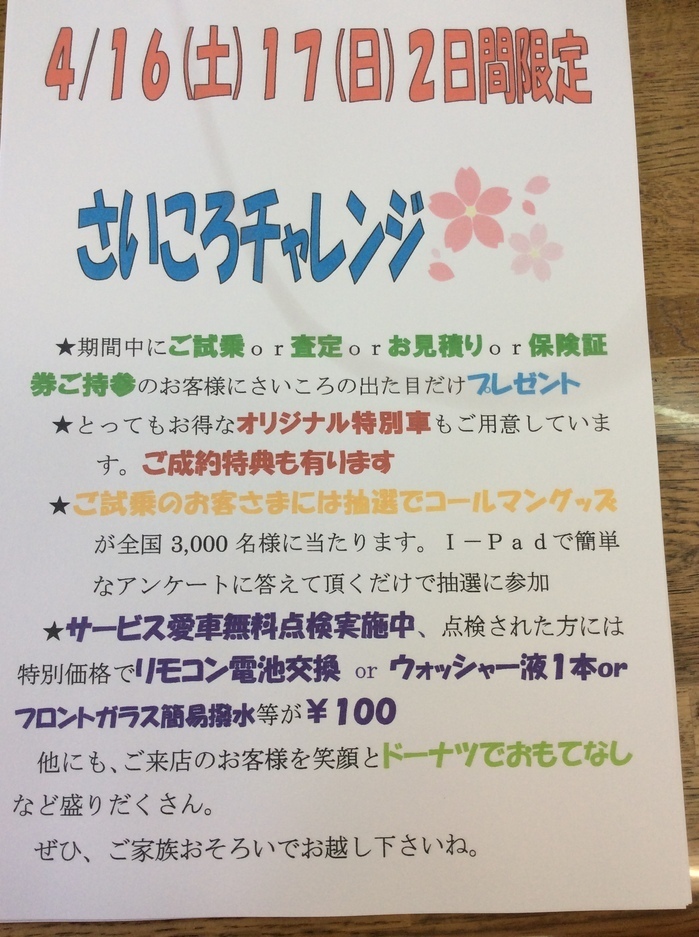 4/16(土)17(日)2日間限定
さいころチャレンジ
★期間中にご試乗ｏｒ査定ｏｒお見積りｏｒ保険証
券ご持参のお客様にさいころの出た目だけプレゼント
★とってもお得なオリジナル特別車もご用意していま
す。ご成約特典も有ります
★ご試乗のお客さまには抽選でコールマングッズ
が全国 3,000 名様に当たります。Ｉ－Ｐａｄで簡単
なアンケートに答えて頂くだけで抽選に参加
★サービス愛車無料点検実施中、点検された方には
特別価格でリモコン電池交換 or ウォッシャー液1本or
フロントガラス簡易撥水等が￥100
他にも、ご来店のお客様を笑顔とドーナツでおもてなし
など盛りだくさん。
ぜひ、ご家族おそろいでお越し下さいね。